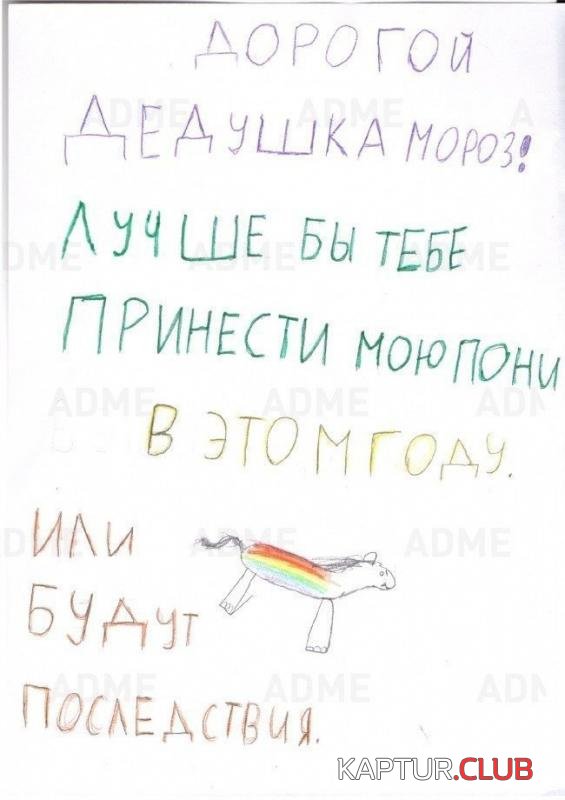 ДОРОГОЙ
ДЕДУШКА МОРОЗ!
ЛУЧШЕ БЫ ТЕБЕ
ПРИНЕСТИ МОЮ ПОНИ
В ЭТОМ ГОДУ.
ИЛИ
БУДУТ
ПОСЛЕДСТВИЯ.
ADME ADME ADME
ADME ADME ADME
ADME ADME ADME
ADME ADME ADME
ADME ADME ADME
KAPTUR.CLUB